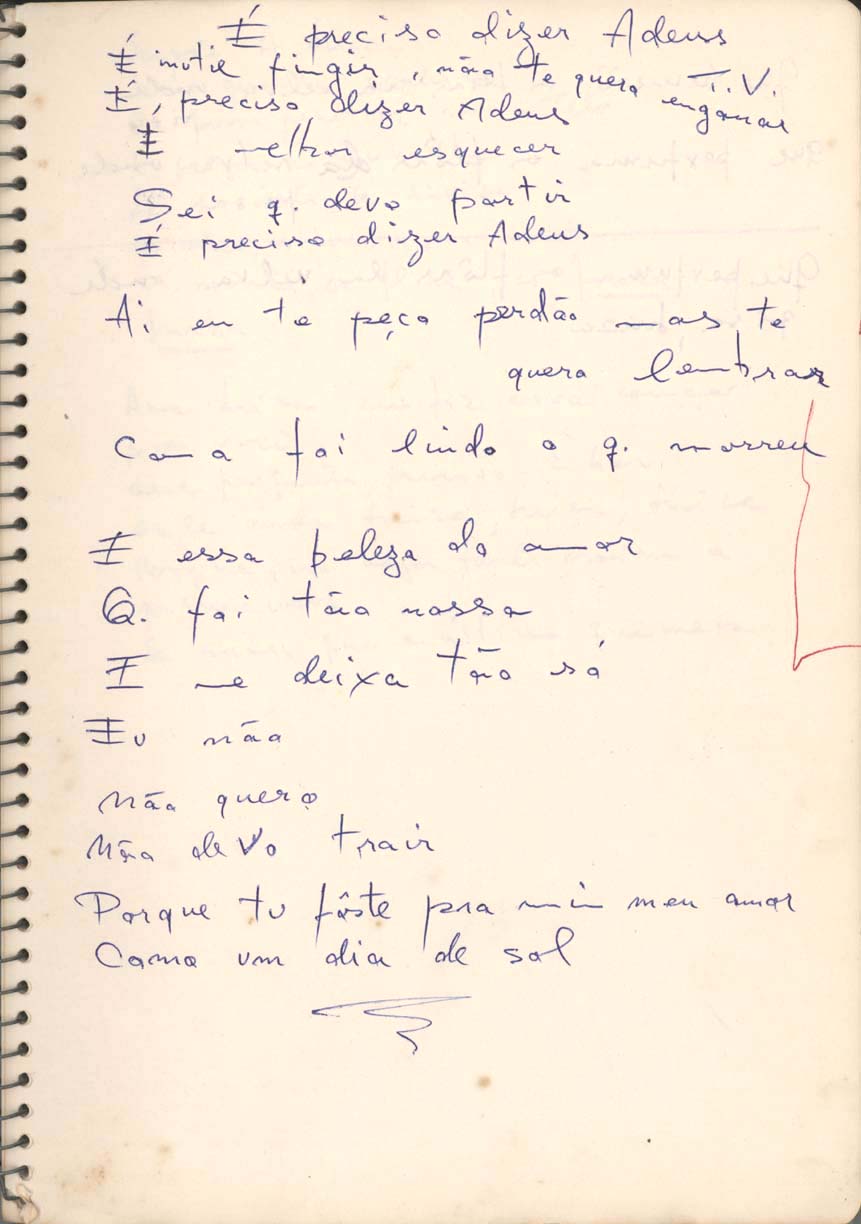 É preciso dizer Adeus
T.V.
É inutil fingir, não te quero enganar
É, preciso dizer Adeus
É melhor esquecer
Sei q. devo partir
É preciso dizer Adeus
Ai eu te peço perdão mas te
quero lembrar
Como foi lindo o q. morreu
E essa beleza do amor
Q. foi tão nossa
E me deixa tão só
Eu não
não quero
Não devo trair
Porque tu fôste pra mim meu amor
Como um dia de sol